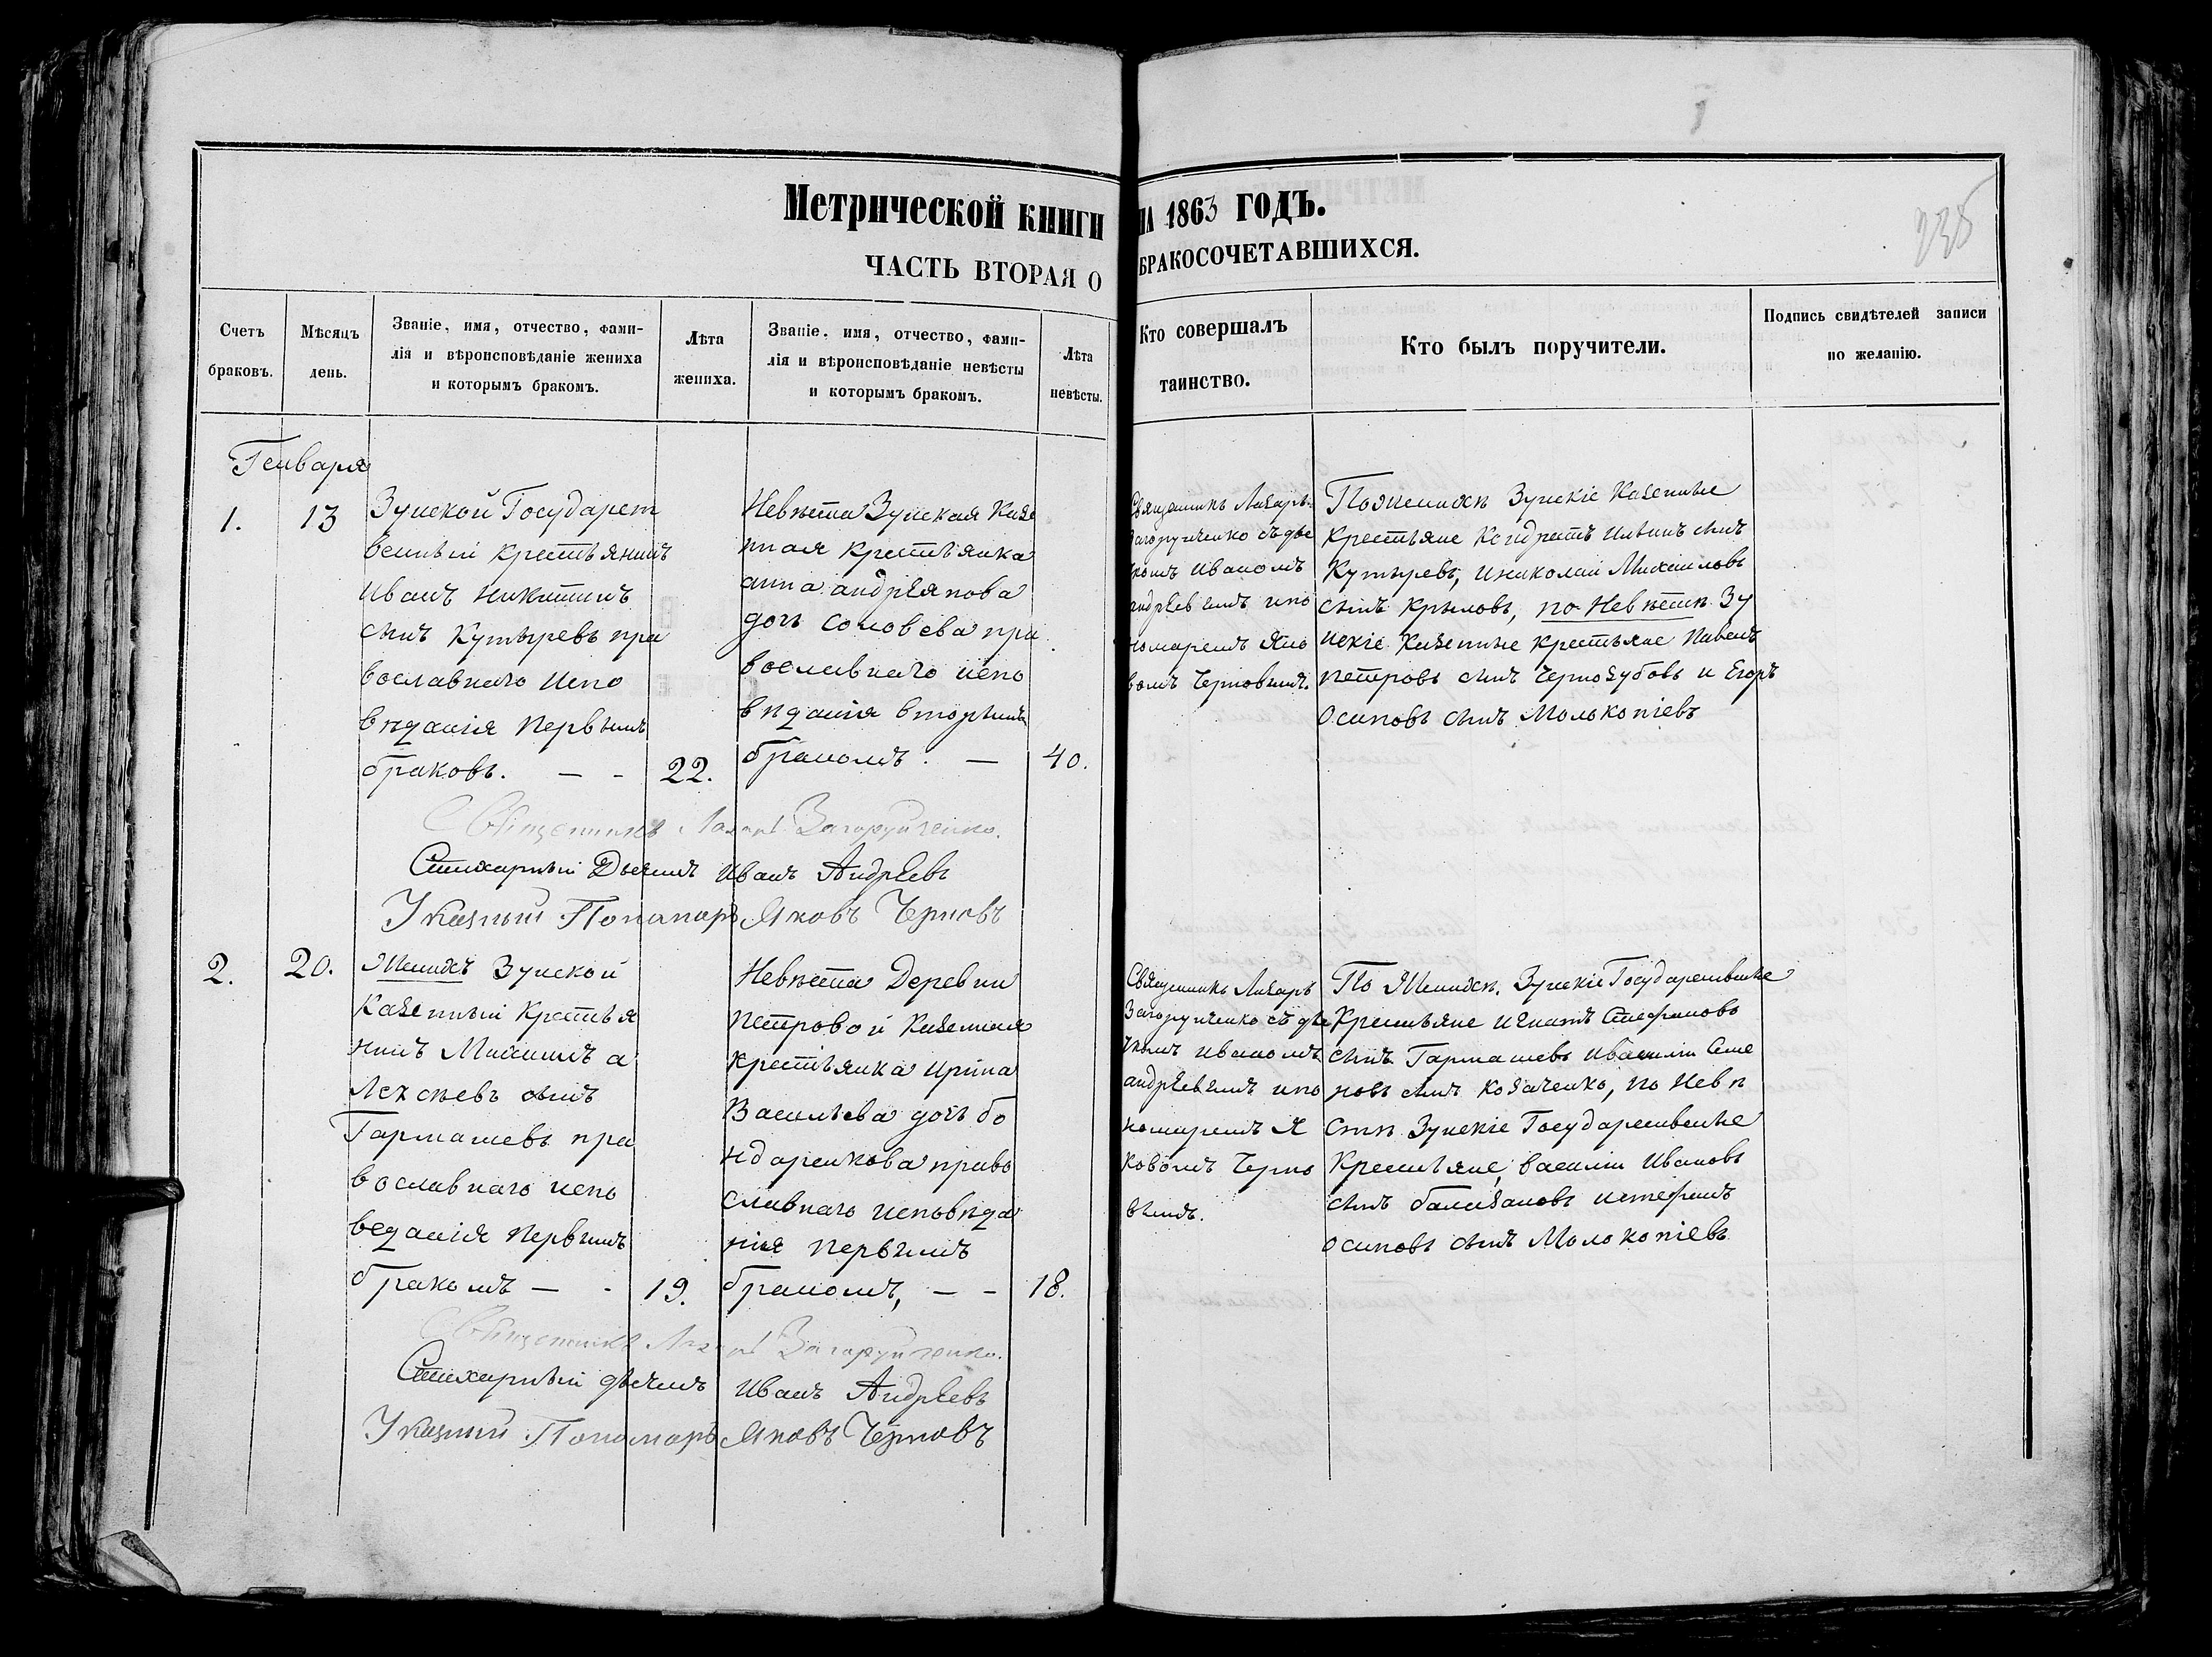 Метрической книги на 1863 годъ.
ЧАСТЬ ВТОРАЯ О БРАКОСОЧЕТАВШИХСЯ.
235
Счетъ браковъ.
Мѣсяцъ день.
Званіе, имя, отчество, фами-
лія и вѣроисповѣданіе жениха
и которымъ бракомъ.
Лѣта
жениха.
Званіе, имя, отчество, фами-
лія и вѣроисповѣданіе невѣсты
и которымъ бракомъ.
Лѣта
невѣсты.
Кто совершалъ
таинство.
Кто былъ поручители.
Подпись свидѣтелей записи
по желанію.
Генваря
1.
13
Зунской Государст
венный крестьянинъ
Иванъ Никитинъ
сынъ Кутыревъ пра
вославнаго испо
вѣданія первымъ
браковъ. — -
22.
Невѣста Зунская Казе
нная крестьянка
анна андреянова
дочь соловева пра
вославнаго испо
вѣданія вторымъ
бракомъ. —
40.
Священникъ Лазарь
Загоруйченко съ дьe
чкомъ Иваномъ
андреевымъ и по
номаремъ Яко
вомъ Черновымъ.
По женихѣ Зунскіе Казенные
Крестьяне Кондратъ Ильинъ сынъ
Кутыревъ, и николай Михаиловъ
сынъ Крыловъ, по Невѣстѣ Зу
нскіе Казенные Крестьяне Павелъ
петровъ сынъ Чернозубовъ и Егоръ
Осиповъ сынъ Молокопіевъ
Священникъ Лазарь Загоруйченко.
Стихарный Дьячикъ Иванъ Андреевъ
Указный Пономарь Яковъ Черновъ
2.
20.
Женихъ Зунской
Казенный Крестья
нинъ Михаилъ а
лексѣевъ сынъ
Гармашевъ пра
вославнаго испо
веданія первымъ
бракомъ — -
19.
Невѣста Деревни
петровой Казенная
крестьянка Ирина
Васильева дочь бо
ндаренкова право
славнаго исповѣда
нія первымъ
бракомъ, - -
18.
Священникъ Лазарь
Загоруйченко съ дье
чкомъ иваномъ
андреевымъ и по
номаремъ Я
ковомъ Черно
вымъ.
По Женихѣ. Зунскіе Государственные
Крестьяне игнатъ Стефановъ
сынъ Гармашевъ и василіи Семе
новъ сынъ Козаченко, по Невѣ
стѣ Зунскіе Государственные
Крестьяне, василіи Ивановъ
сынъ балабановъ и стефанъ
осиповъ сынъ Молокопіевъ.
Священникъ Лазарь Загоруйченко.
Стихарный дьячикъ Иванъ Андреевъ
Указный Пономарь Яковъ Черновъ